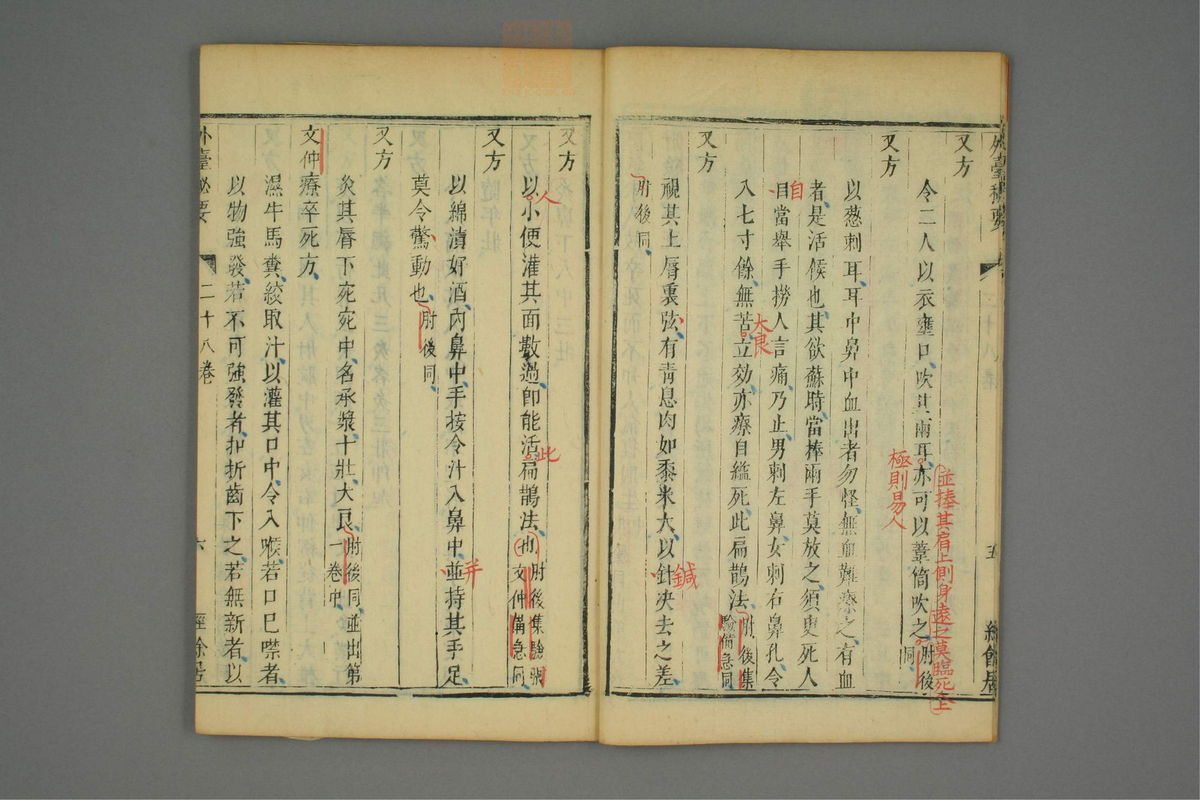 外臺秘要
二十八卷
五
經餘居
又方
令二人以衣壅口吹其兩耳亦可以葦筒吹之肘後同
並捧其肩上側身遠之莫臨死人上
極則易人
又方
以葱刺耳耳中鼻中血出者勿怪無血難療之有血
者是活候也其欲蘇時當捧兩手莫放之須臾死人
目當舉手撈人言痛乃止男刺左鼻女刺右鼻孔令
自
入七寸餘無苦立効亦療自縊死此扁鵲法肘後集驗備急同
大良
又方
視其上脣裏弦有青息肉如黍米大以針决去之差
鍼
肘後同
又方
以小便灌其面數過卽能活扁鵲法也肘後集驗張文仲備急同
人
此
又方
以綿漬好酒內鼻中手按令汁入鼻中並持其手足
并
莫令驚動也肘後同
又方
灸其脣下宛宛中名承漿十壯大良肘後同並出第一卷中
文仲療卒死方
濕牛馬糞絞取汁以灌其口中令入喉若口已噤者
以物強發若不可強發者扣折齒下之若無新者以
外臺秘要
二十八卷
六
經餘居